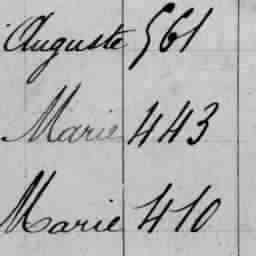 Auguste 561
Marie 443
Marie 410